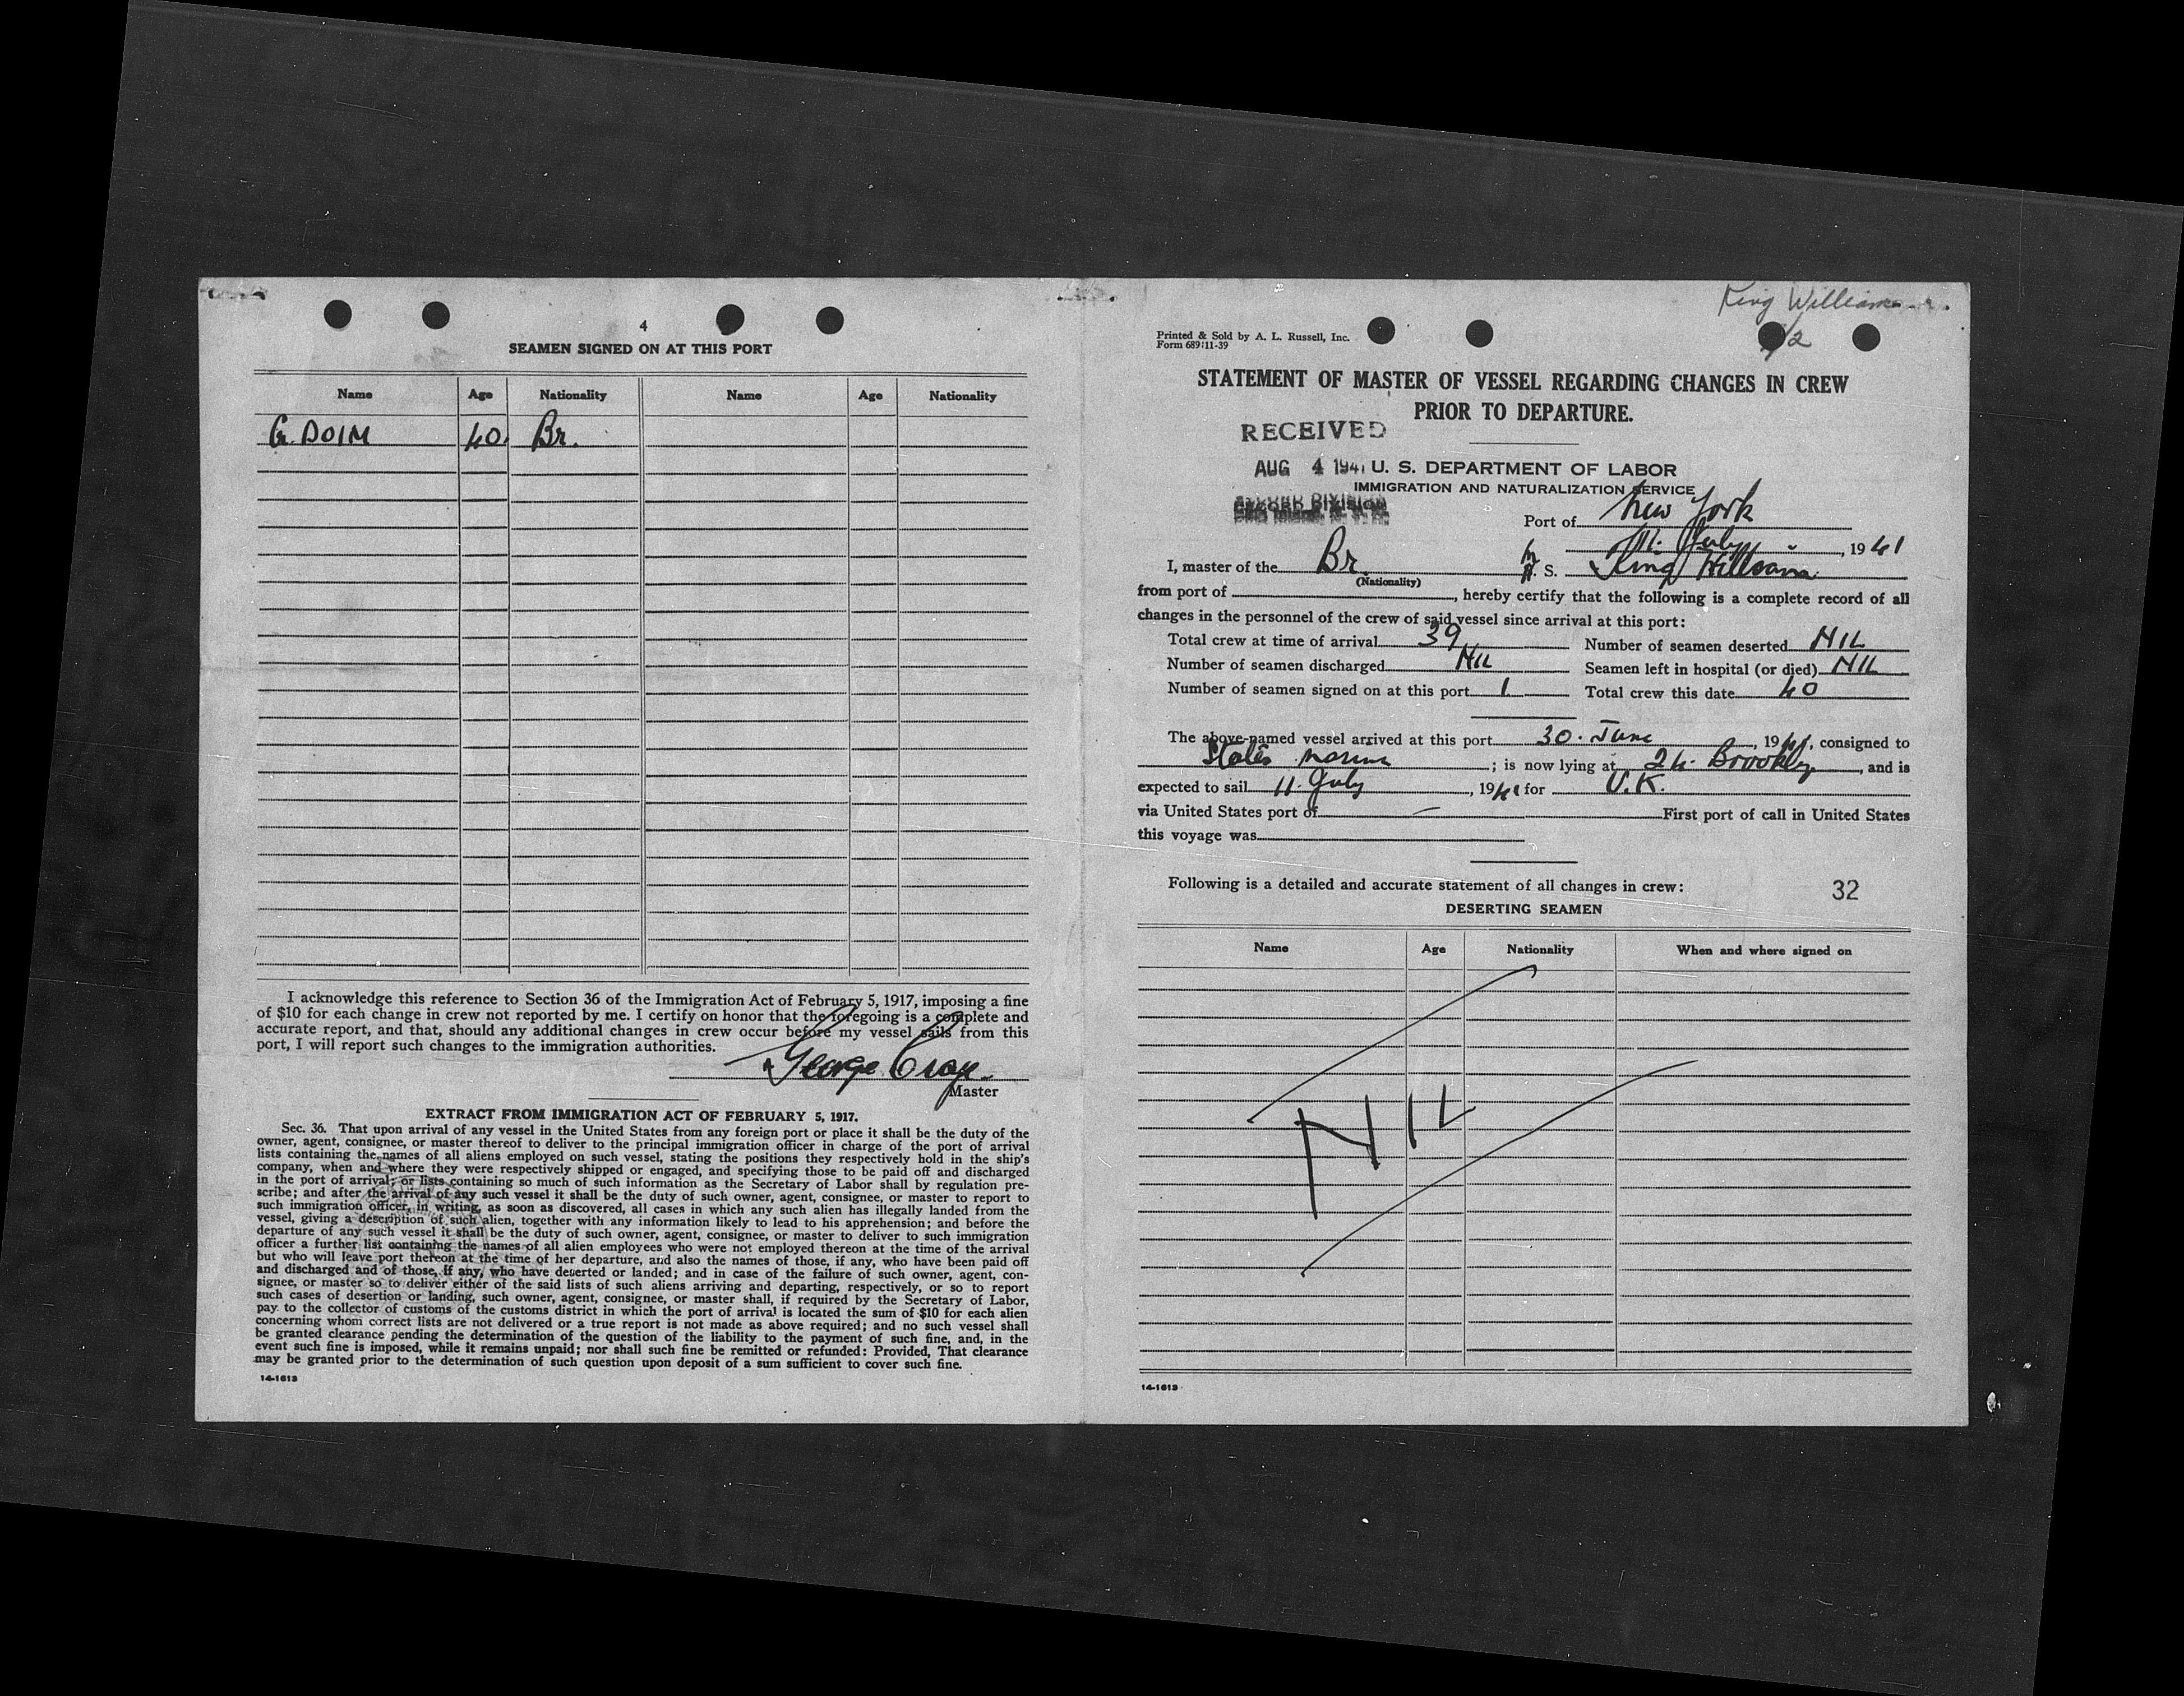 4
SEAMEN SIGNED ON AT THIS PORT
Name Age Nationality Name Age Nationality
G. DOIM 40 Br.
I acknowledge this reference to Section 36 of the Immigration Act of February 5, 1917, imposing a fine
of $10 for each change in crew not reported by me. I certify on honor that the foregoing is a complete and
accurate report, and that, should any additional changes in crew occur before my vessel sails from this
port, I will report such changes to the immigration authorities.
George
Master
EXTRACT FROM IMMIGRATION ACT OF FEBRUARY 5, 1917.
Sec. 36. That upon arrival of any vessel in the United States from any foreign port or place it shall be the duty of the
owner, agent, consignee, or master thereof to deliver to the principal immigration officer in charge of the port of arrival
lists containing the names of all aliens employed on such vessel, stating the positions they respectively hold in the ship's
company, when and where they were respectively shipped or engaged, and specifying those to be paid off and discharged
in the port of arrival; or lists containing so much of such information as the Secretary of Labor shall by regulation pre-
scribe; and after the arrival of any such vessel it shall be the duty of such owner, agent, consignee, or master to report to
such immigration officer, in writing, as soon as discovered, all cases in which any such alien has illegally landed from the
vessel, giving a description of such alien, together with any information likely to lead to his apprehension; and before the
departure of any such vessel it shall be the duty of such owner, agent, consignee, or master to deliver to such immigration
officer a further list containing the names of all alien employees who were not employed thereon at the time of the arrival
but who will leave port thereon at the time of her departure, and also the names of those, if any, who have been paid off
and discharged and of those, if any, who have deserted or landed; and in case of the failure of such owner, agent, con-
signee, or master so to deliver either of the said lists of such aliens arriving and departing, respectively, or so to report
such cases of desertion or landing, such owner, agent, consignee, or master shall, if required by the Secretary of Labor,
pay to the collector of customs of the customs district in which the port of arrival is located the sum of $10 for each alien
concerning whom correct lists are not delivered or a true report is not made as above required; and no such vessel shall
be granted clearance pending the determination of the question of the liability to the payment of such fine, and, in the
event such fine is imposed, while it remains unpaid; nor shall such fine be remitted or refunded: Provided, That clearance
may be granted prior to the determination of such question upon deposit of a sum sufficient to cover such fine.
14-1613
King William
Printed & Sold by A. L. Russell, Inc.
Form 689:11-39
STATEMENT OF MASTER OF VESSEL REGARDING CHANGES IN CREW
PRIOR TO DEPARTURE.
RECEIVED
AUG 4 1941 U. S. DEPARTMENT OF LABOR
IMMIGRATION AND NATURALIZATION SERVICE
RECORD DIVISION
Port of New York
11. July, 1941
I, master of the Br M. S. King William
(Nationality)
from port of , hereby certify that the following is a complete record of all
changes in the personnel of the crew of said vessel since arrival at this port:
Total crew at time of arrival 39 Number of seamen deserted NIL
Number of seamen discharged NIL Seamen left in hospital (or died) NIL
Number of seamen signed on at this port 1 Total crew this date 40
The above-named vessel arrived at this port 30. June, 1941, consigned to
States Marine ; is now lying at 24. Brookly, and is
expected to sail 11. July, 1941 for U.K.
via United States port of — First port of call in United States
this voyage was
Following is a detailed and accurate statement of all changes in crew: 32
DESERTING SEAMEN
Name Age Nationality When and where signed on
NIL
14-1613